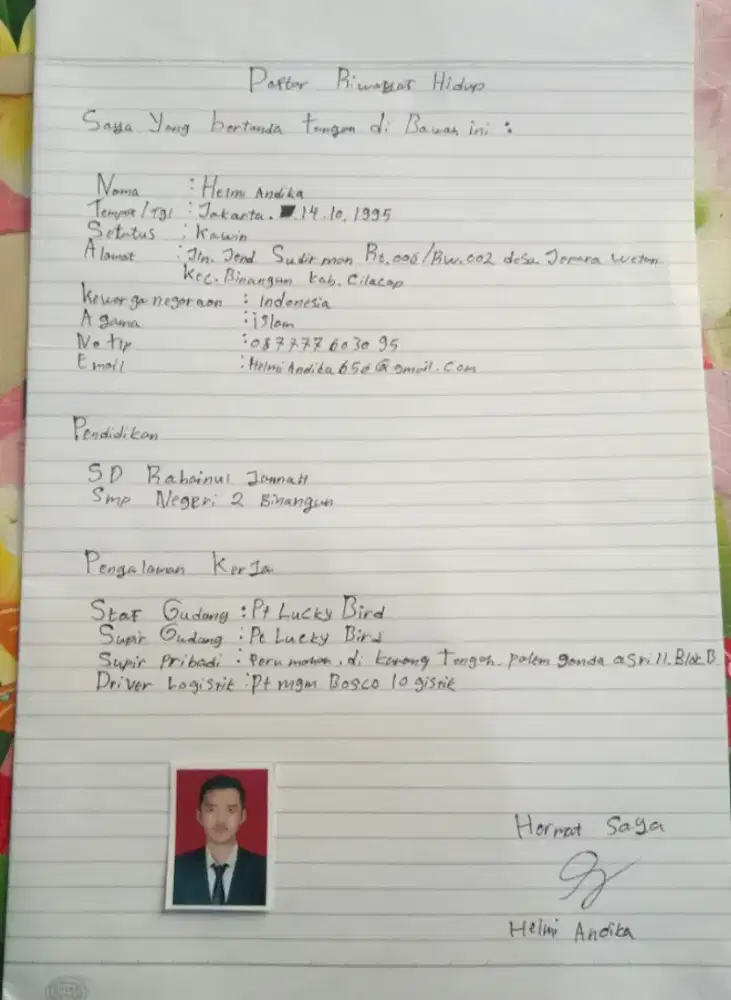 Daftar Riwayat Hidup
Saya Yang bertanda tangan di Bawah ini :
Nama : Helmi Andika
Tempat/Tgl : Jakarta. 14.10.1995
Setatus : Kawin
Alamat : Jln. Jend Sudirman Rt.006/Rw.002 desa Jepara Wetan
Kec. Binangun Kab. Cilacap
Kewarganegaraan : Indonesia
Agama : islam
No tlp : 087777603095
Email : HelmiAndika656@gmail.com
Pendidikan
SD Rahainul Jannah
Smp Negeri 2 Binangun
Pengalaman Kerja
Staf Gudang : Pt Lucky Bird
Supir Gudang : Pt Lucky Bird
Supir Pribadi : Perumahan di Karang Tengah. palem ganda asri 11. Blok B
Driver Logistik : Pt mgm Bosco logistik
Hormat Saya
Helmi Andika